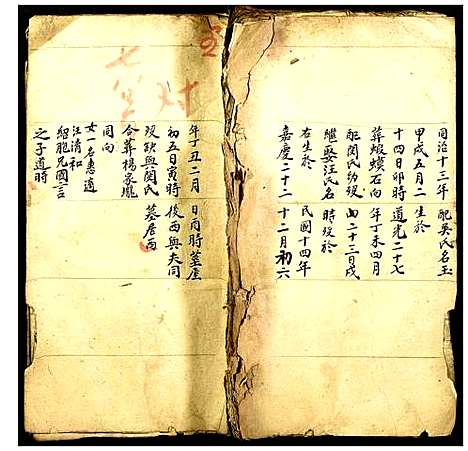 同治十三年
甲戌五月二
十四日卯時
葬蝦蟆石向
配闵氏幼殁
繼娶汪氏名
右生於
嘉慶二十二
配吳氏名玉
生於
道光二十七
年丁未四月
二十三日戌
時殁於
民國十四年
十二月初六
年丁丑二月
初五日寅時
殁缺與闵氏
合葬楊家
同向
女一名惠適
汪清和
紹胞兄國言
之子道時
日酉時墓厝
後西與夫同
墓居西
七